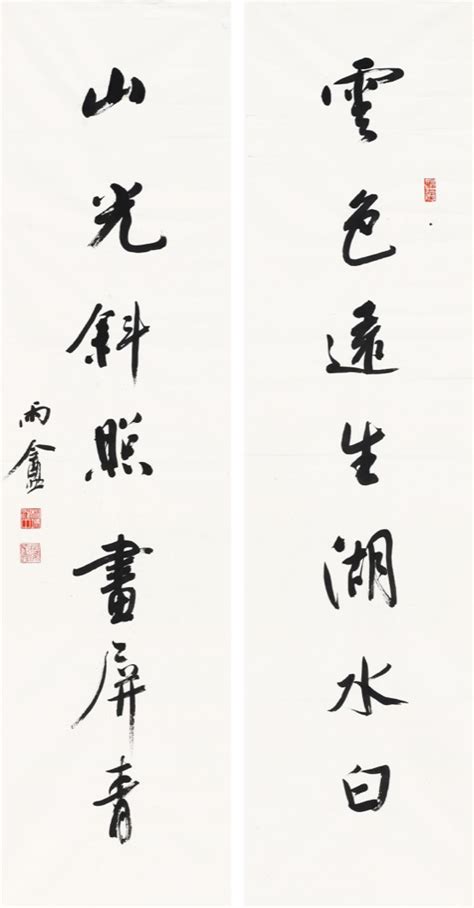 雲色遠生湖水白
山光斜照畫屏青
雨盦